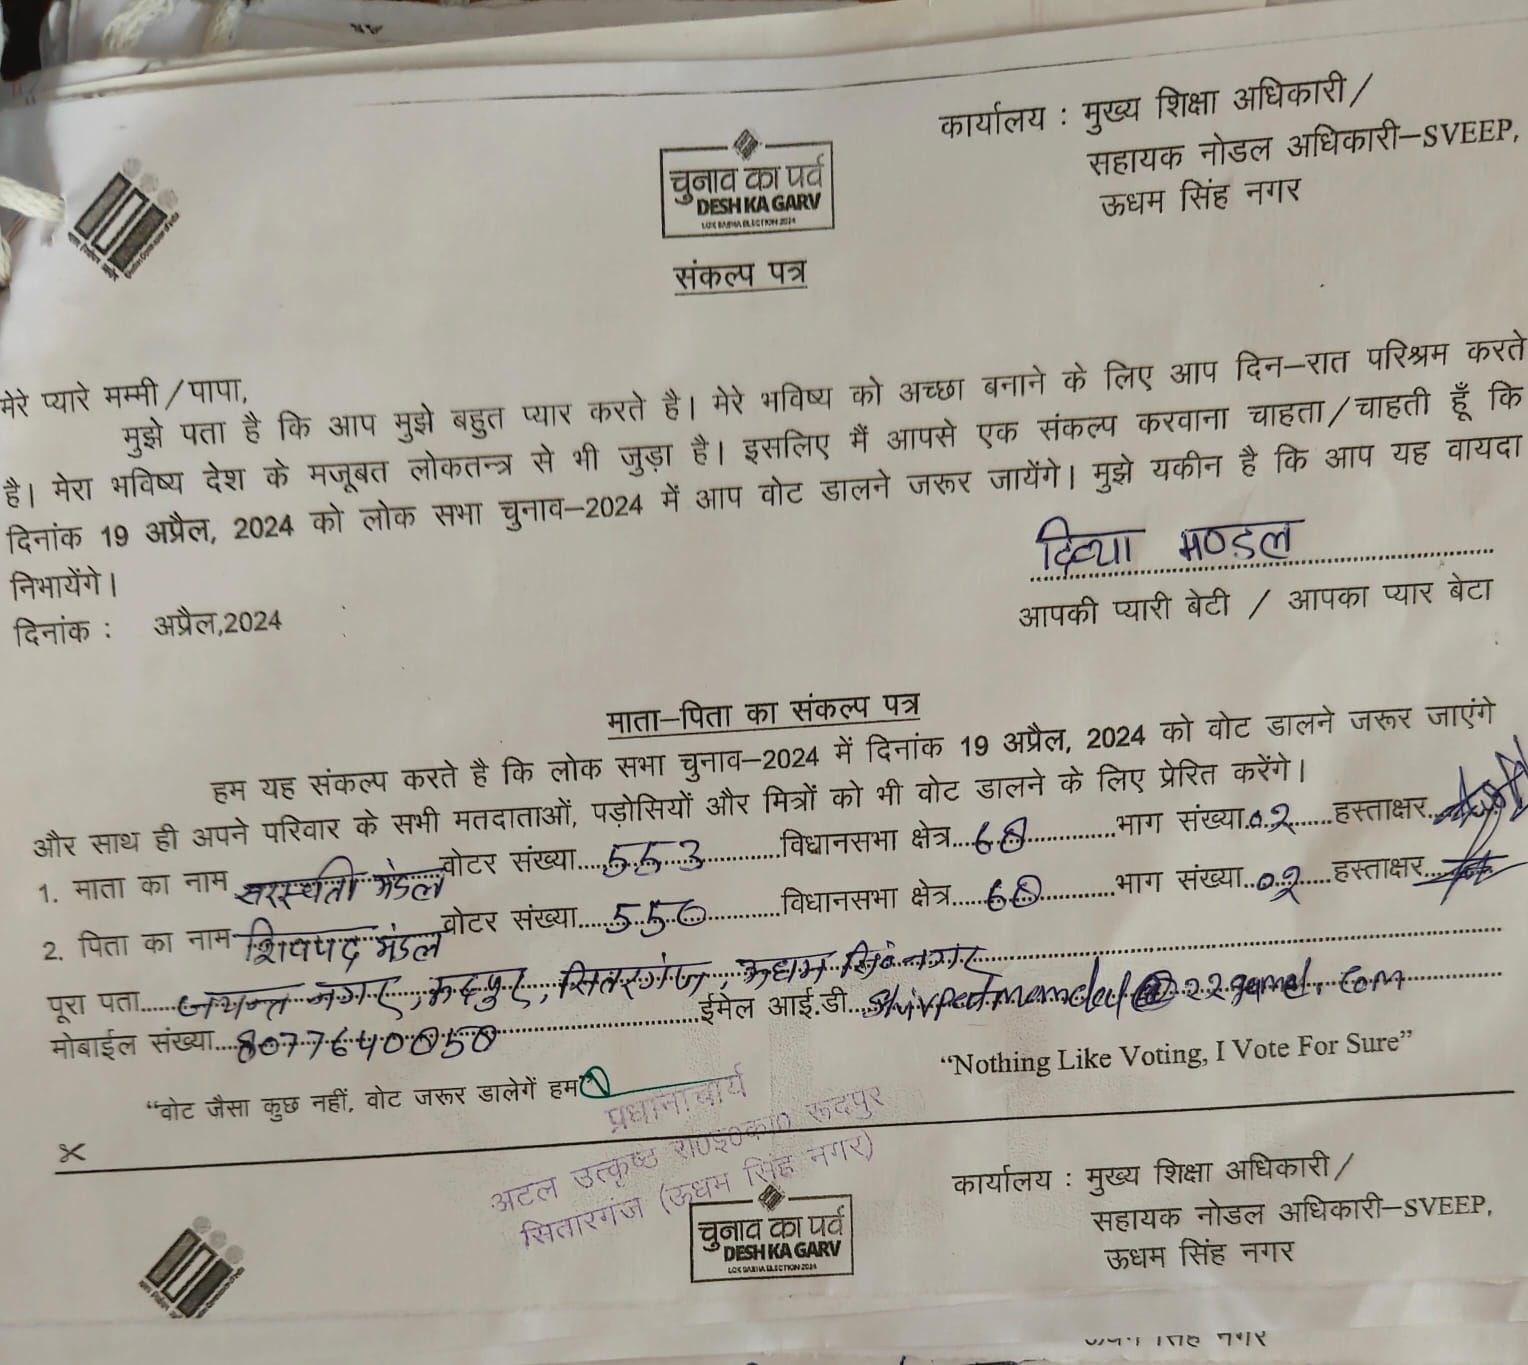 कार्यालय : मुख्य शिक्षा अधिकारी/
सहायक नोडल अधिकारी–SVEEP,
ऊधम सिंह नगर
चुनाव का पर्व
DESH KA GARV
LOK SABHA ELECTION 2024
संकल्प पत्र
मेरे प्यारे मम्मी/पापा,
मुझे पता है कि आप मुझे बहुत प्यार करते है। मेरे भविष्य को अच्छा बनाने के लिए आप दिन–रात परिश्रम करते
है। मेरा भविष्य देश के मजूबत लोकतन्त्र से भी जुड़ा है। इसलिए मैं आपसे एक संकल्प करवाना चाहता/चाहती हूँ कि
दिनांक 19 अप्रैल, 2024 को लोक सभा चुनाव–2024 में आप वोट डालने जरूर जायेंगे। मुझे यकीन है कि आप यह वायदा
निभायेंगे।
दिव्या मण्डल
दिनांक : अप्रैल,2024
आपकी प्यारी बेटी / आपका प्यार बेटा
माता–पिता का संकल्प पत्र
हम यह संकल्प करते है कि लोक सभा चुनाव–2024 में दिनांक 19 अप्रैल, 2024 को वोट डालने जरूर जाएंगे
और साथ ही अपने परिवार के सभी मतदाताओं, पड़ोसियों और मित्रों को भी वोट डालने के लिए प्रेरित करेंगे।
1. माता का नाम सरस्वती मंडल वोटर संख्या....553....विधानसभा क्षेत्र...68....भाग संख्या.02....हस्ताक्षर
2. पिता का नाम शिवपद मंडल वोटर संख्या....550....विधानसभा क्षेत्र....68....भाग संख्या..02....हस्ताक्षर
पूरा पता...... नगर, रूदपुर, सितारगंज, ऊधम सिंह नगर
मोबाईल संख्या....8077640050....ईमेल आई.डी...
"वोट जैसा कुछ नहीं, वोट जरूर डालेगें हम"
"Nothing Like Voting, I Vote For Sure"
प्रधानाचार्य
अटल उत्कृष्ठ रा०इ०का० रूदपुर
सितारगंज (ऊधम सिंह नगर)
कार्यालय : मुख्य शिक्षा अधिकारी/
सहायक नोडल अधिकारी–SVEEP,
ऊधम सिंह नगर
चुनाव का पर्व
DESH KA GARV
LOK SABHA ELECTION 2024